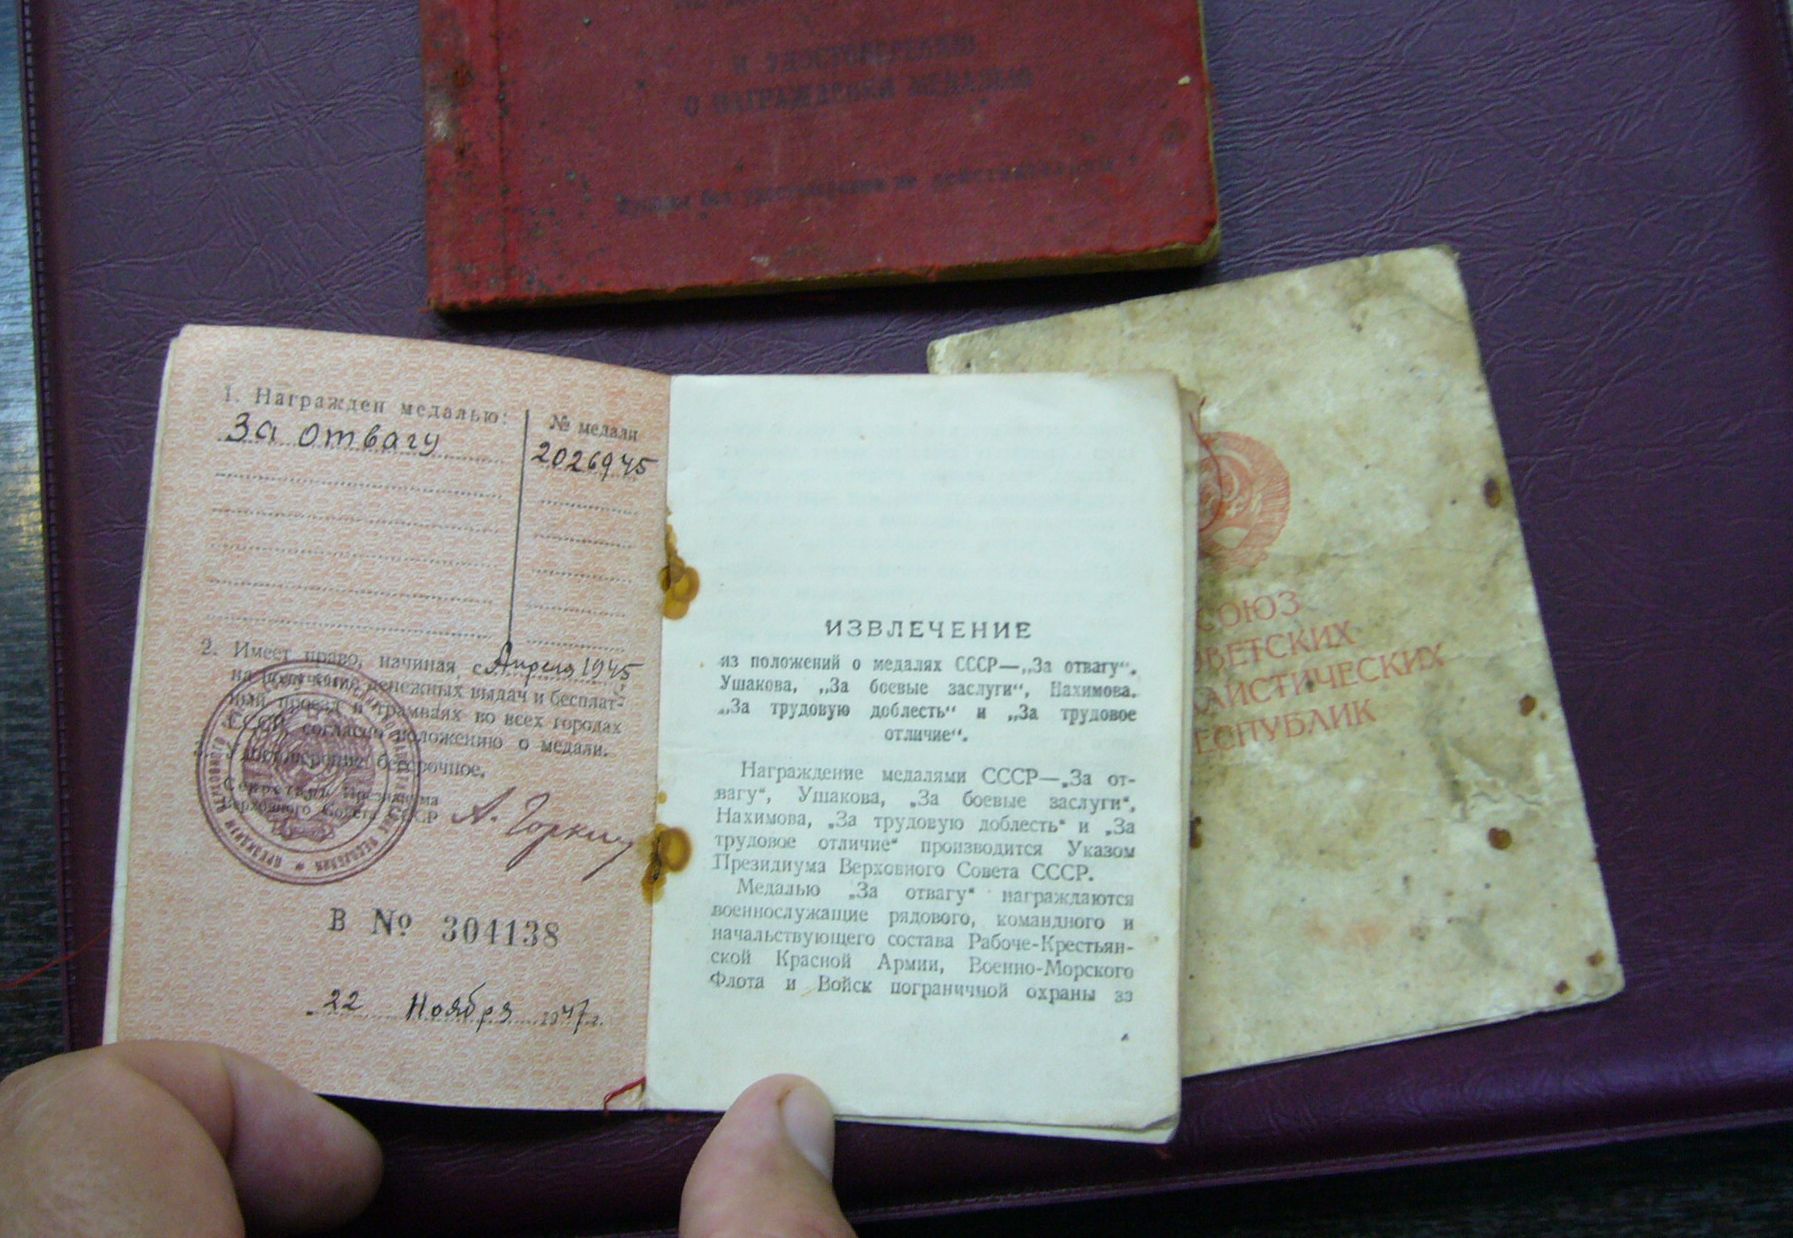 И УДОСТОВЕРЕНИЮ
О НАГРАЖДЕНИИ МЕДАЛЬЮ
Купоны без удостоверения не действительны
1. Награжден медалью:
За отвагу
№ медали
2026945
2. Имеет право, начиная с Апреля 1945
на получение денежных выдач и бесплат-
ный проезд в трамваях во всех городах
СССР, согласно положению о медали.
Удостоверение бессрочное.
Секретарь Президиума
Верховного Совета СССР
А. Горкин
В № 304138
22 Ноября 1947 г.
ИЗВЛЕЧЕНИЕ
из положений о медалях СССР—„За отвагу“.
Ушакова, „За боевые заслуги“, Нахимова.
„За трудовую доблесть“ и „За трудовое
отличие“.
Награждение медалями СССР—„За от-
вагу“, Ушакова, „За боевые заслуги“,
Нахимова, „За трудовую доблесть“ и „За
трудовое отличие“ производится Указом
Президиума Верховного Совета СССР.
Медалью „За отвагу“ награждаются
военнослужащие рядового, командного и
начальствующего состава Рабоче-Крестьян-
ской Красной Армии, Военно-Морского
Флота и Войск пограничной охраны за
СОЮЗ
ОВЕТСКИХ
АЛИСТИЧЕСКИХ
ЕСПУБЛИК